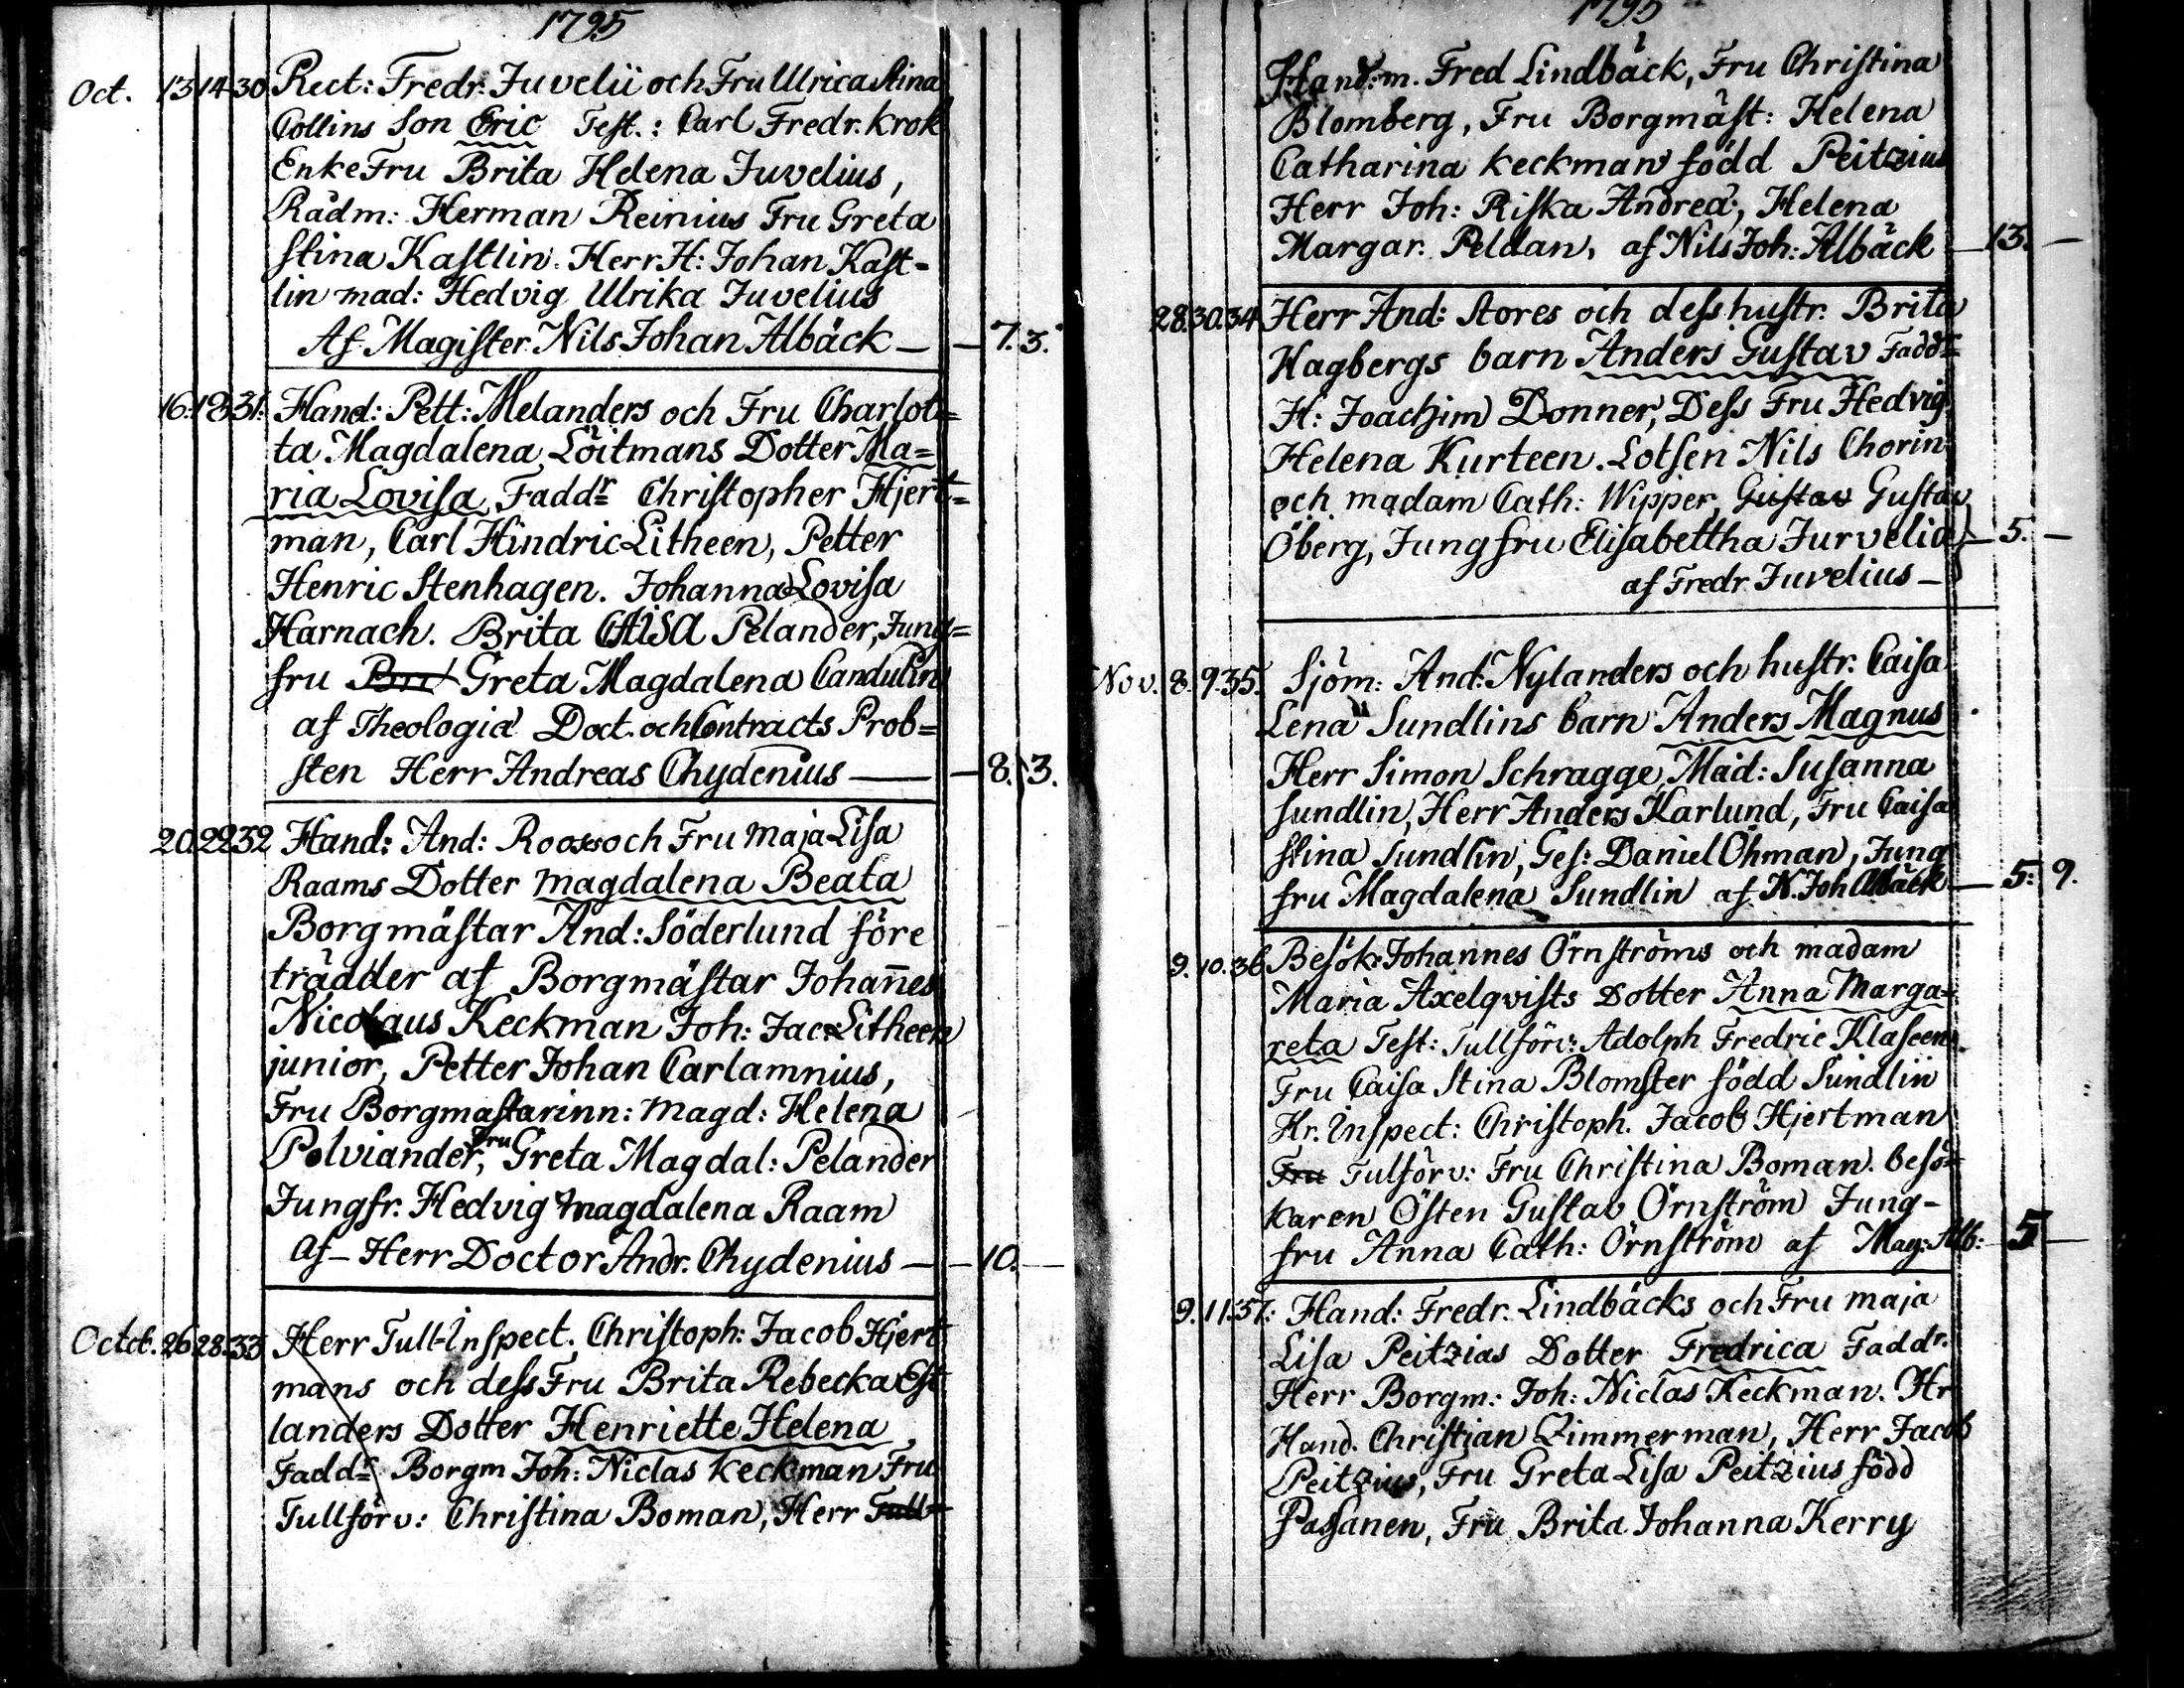 1795
Oct. 13 14 30 Rect: Fredr: Juvelii och Fru Ulrica Stina
Collins Son Eric Test.: Carl Fredr. Krok
EnkeFru Brita Helena Juvelius,
Rådm: Herman Reinius Fru Greta
Stina Kastlin. Herr H: Johan Kast-
lin mad: Hedvig Ulrika Juvelius
Af Magister Nils Johan Albäck — — 7. 3.
16. 18 31. Hand: Pett: Melanders och Fru Charlot=
ta Magdalena Löitmans Dotter Ma=
ria Lovisa, Faddr Christopher Hjert=
man, Carl Hindric Litheen, Petter
Henric Stenhagen. Johanna Lovisa
Harnach. Brita CAISA Pelander, Jung=
fru Greta Magdalena Candulin
af Theologiæ Doct. och Contracts Prob=
sten Herr Andreas Chydenius — — 8. 3.
20. 22 32 Hand: And: Rooss och Fru Maja Lisa
Raams Dotter Magdalena Beata
Borgmästar And: Söderlund före
trädder af Borgmästar Johan̄es
Nicolaus Keckman Joh: Jac: Litheen
junior, Petter Johan Carlamnius,
Fru Borgmästarinn: Magd: Helena
Polviander, Fru Greta Magdal: Pelander
Jungfr. Hedvig Magdalena Raam
Af – Herr Doctor Andr. Chydenius — — 10. —
Octob. 26 28. 33 Herr Tull-Inspect. Christoph: Jacob Hjert
mans och dess Fru Brita Rebecka Est
landers Dotter Henriette Helena
Faddr Borgm Joh: Niclas Keckman Fru
Tullförv: Christina Boman, Herr Tull=
1795
Hand:m. Fred Lindbäck, Fru Christina
Blomberg, Fru Borgmäst: Helena
Catharina Keckman född Peitzius
Herr Joh: Riska Andreæ, Helena
Margar. Peldan, af Nils Joh: Albäck — 13. —
28. 30. 34 Herr And: Stores och dess hustr. Brita
Hagbergs barn Anders Gustav Faddr=
H: Joachim Donner, Dess Fru Hedvig
Helena Kurteen. Lotsen Nils Chorin
och madam Cath: Wipper, Gustav Gustav
Öberg, Jungfru Elisabettha Jurvelia — 5. —
af Fredr Juvelius —
Nov. 8. 9. 35. Sjöm: And: Nylanders och hustr. Caisa
Lena Sundlins barn Anders Magnus
Herr Simon Schragge, Mad: Susanna
Sundlin, Herr Anders Karlund, Fru Caisa
Stina Sundlin, Ges: Daniel Öhman, Jung
fru Magdalena Sundlin af N. Joh Albäck — 5: 9.
9. 10. 36 Besök: Johannes Örnströms och madam
Maria Axelqvists Dotter Anna Marga=
reta Test: Tullförv: Adolph Fredric Klaseen.
Fru Caisa Stina Blomster född Sundlin
Hr. Inspect: Christoph. Jacob Hjertman
Fru Tulförv: Fru Christina Boman. besö=
karen Östen Gustav Örnström Jung-
fru Anna Cath: Örnström af Mag: Alb: — 5 —
9. 11. 37: Hand: Fredr. Lindbäcks och Fru Maja
Lisa Peitzias Dotter Fredrica Faddr.
Herr Borgm: Joh: Niclas Keckman. Hr
Hand. Christian Zimmerman, Herr Jacob
Peitzius, Fru Greta Lisa Peitzius född
Passanen, Fru Brita Johanna Kerry